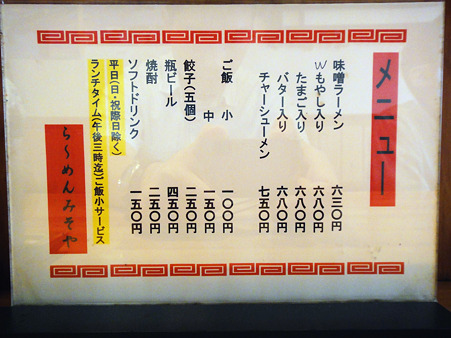 メニュー
味噌ラーメン 六三〇円
Wもやし入り 六八〇円
たまご入り 六八〇円
バター入り 六八〇円
チャーシューメン 七五〇円
ご飯 小 一〇〇円
中 一五〇円
餃子(五個) 二五〇円
瓶ビール 四五〇円
焼酎 二五〇円
ソフトドリンク 一五〇円
平日(日・祝際日除く)
ランチタイム(午後三時迄)ご飯小サービス
らーめんみそや